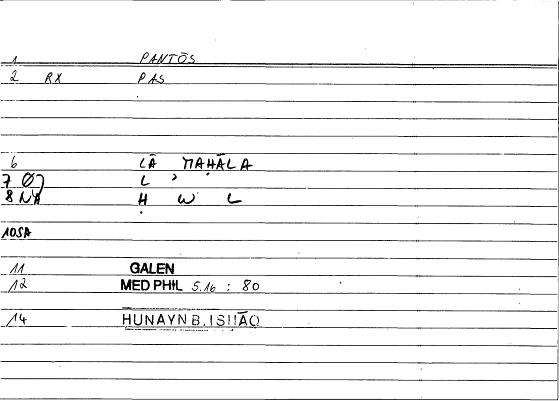 1 PANTŌS
2 RX PAS
6 LĀ MAḤĀLA
7 L ʾ
8 NA H W L
10SA
11 GALEN
12 MED PHIL 5.16 : 80
14 HUNAYN B. ISḤĀQ